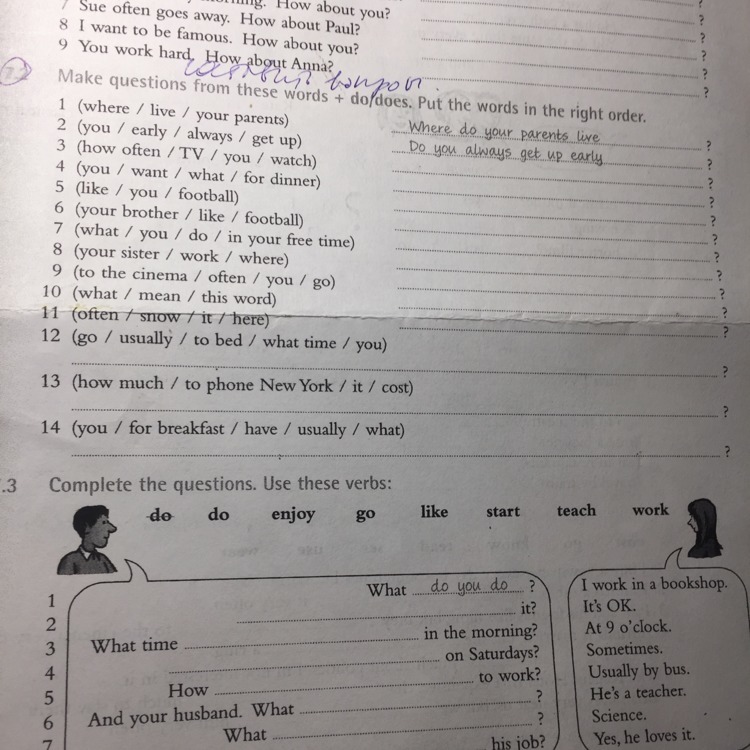 morning. How about you?
7 Sue often goes away. How about Paul? ?
8 I want to be famous. How about you? ?
9 You work hard. How about Anna? ?
7.2 Make questions from these words + do/does. Put the words in the right order.
1 (where / live / your parents) Where do your parents live ?
2 (you / early / always / get up) Do you always get up early ?
3 (how often / TV / you / watch) ?
4 (you / want / what / for dinner) ?
5 (like / you / football) ?
6 (your brother / like / football) ?
7 (what / you / do / in your free time) ?
8 (your sister / work / where) ?
9 (to the cinema / often / you / go) ?
10 (what / mean / this word) ?
11 (often / snow / it / here) ?
12 (go / usually / to bed / what time / you)
?
13 (how much / to phone New York / it / cost)
?
14 (you / for breakfast / have / usually / what)
?
.3 Complete the questions. Use these verbs:
do do enjoy go like start teach work
1 What do you do ? I work in a bookshop.
2 it? It's OK.
3 What time in the morning? At 9 o'clock.
4 on Saturdays? Sometimes.
5 How to work? Usually by bus.
6 And your husband. What ? He's a teacher.
7 What ? Science.
his job? Yes, he loves it.